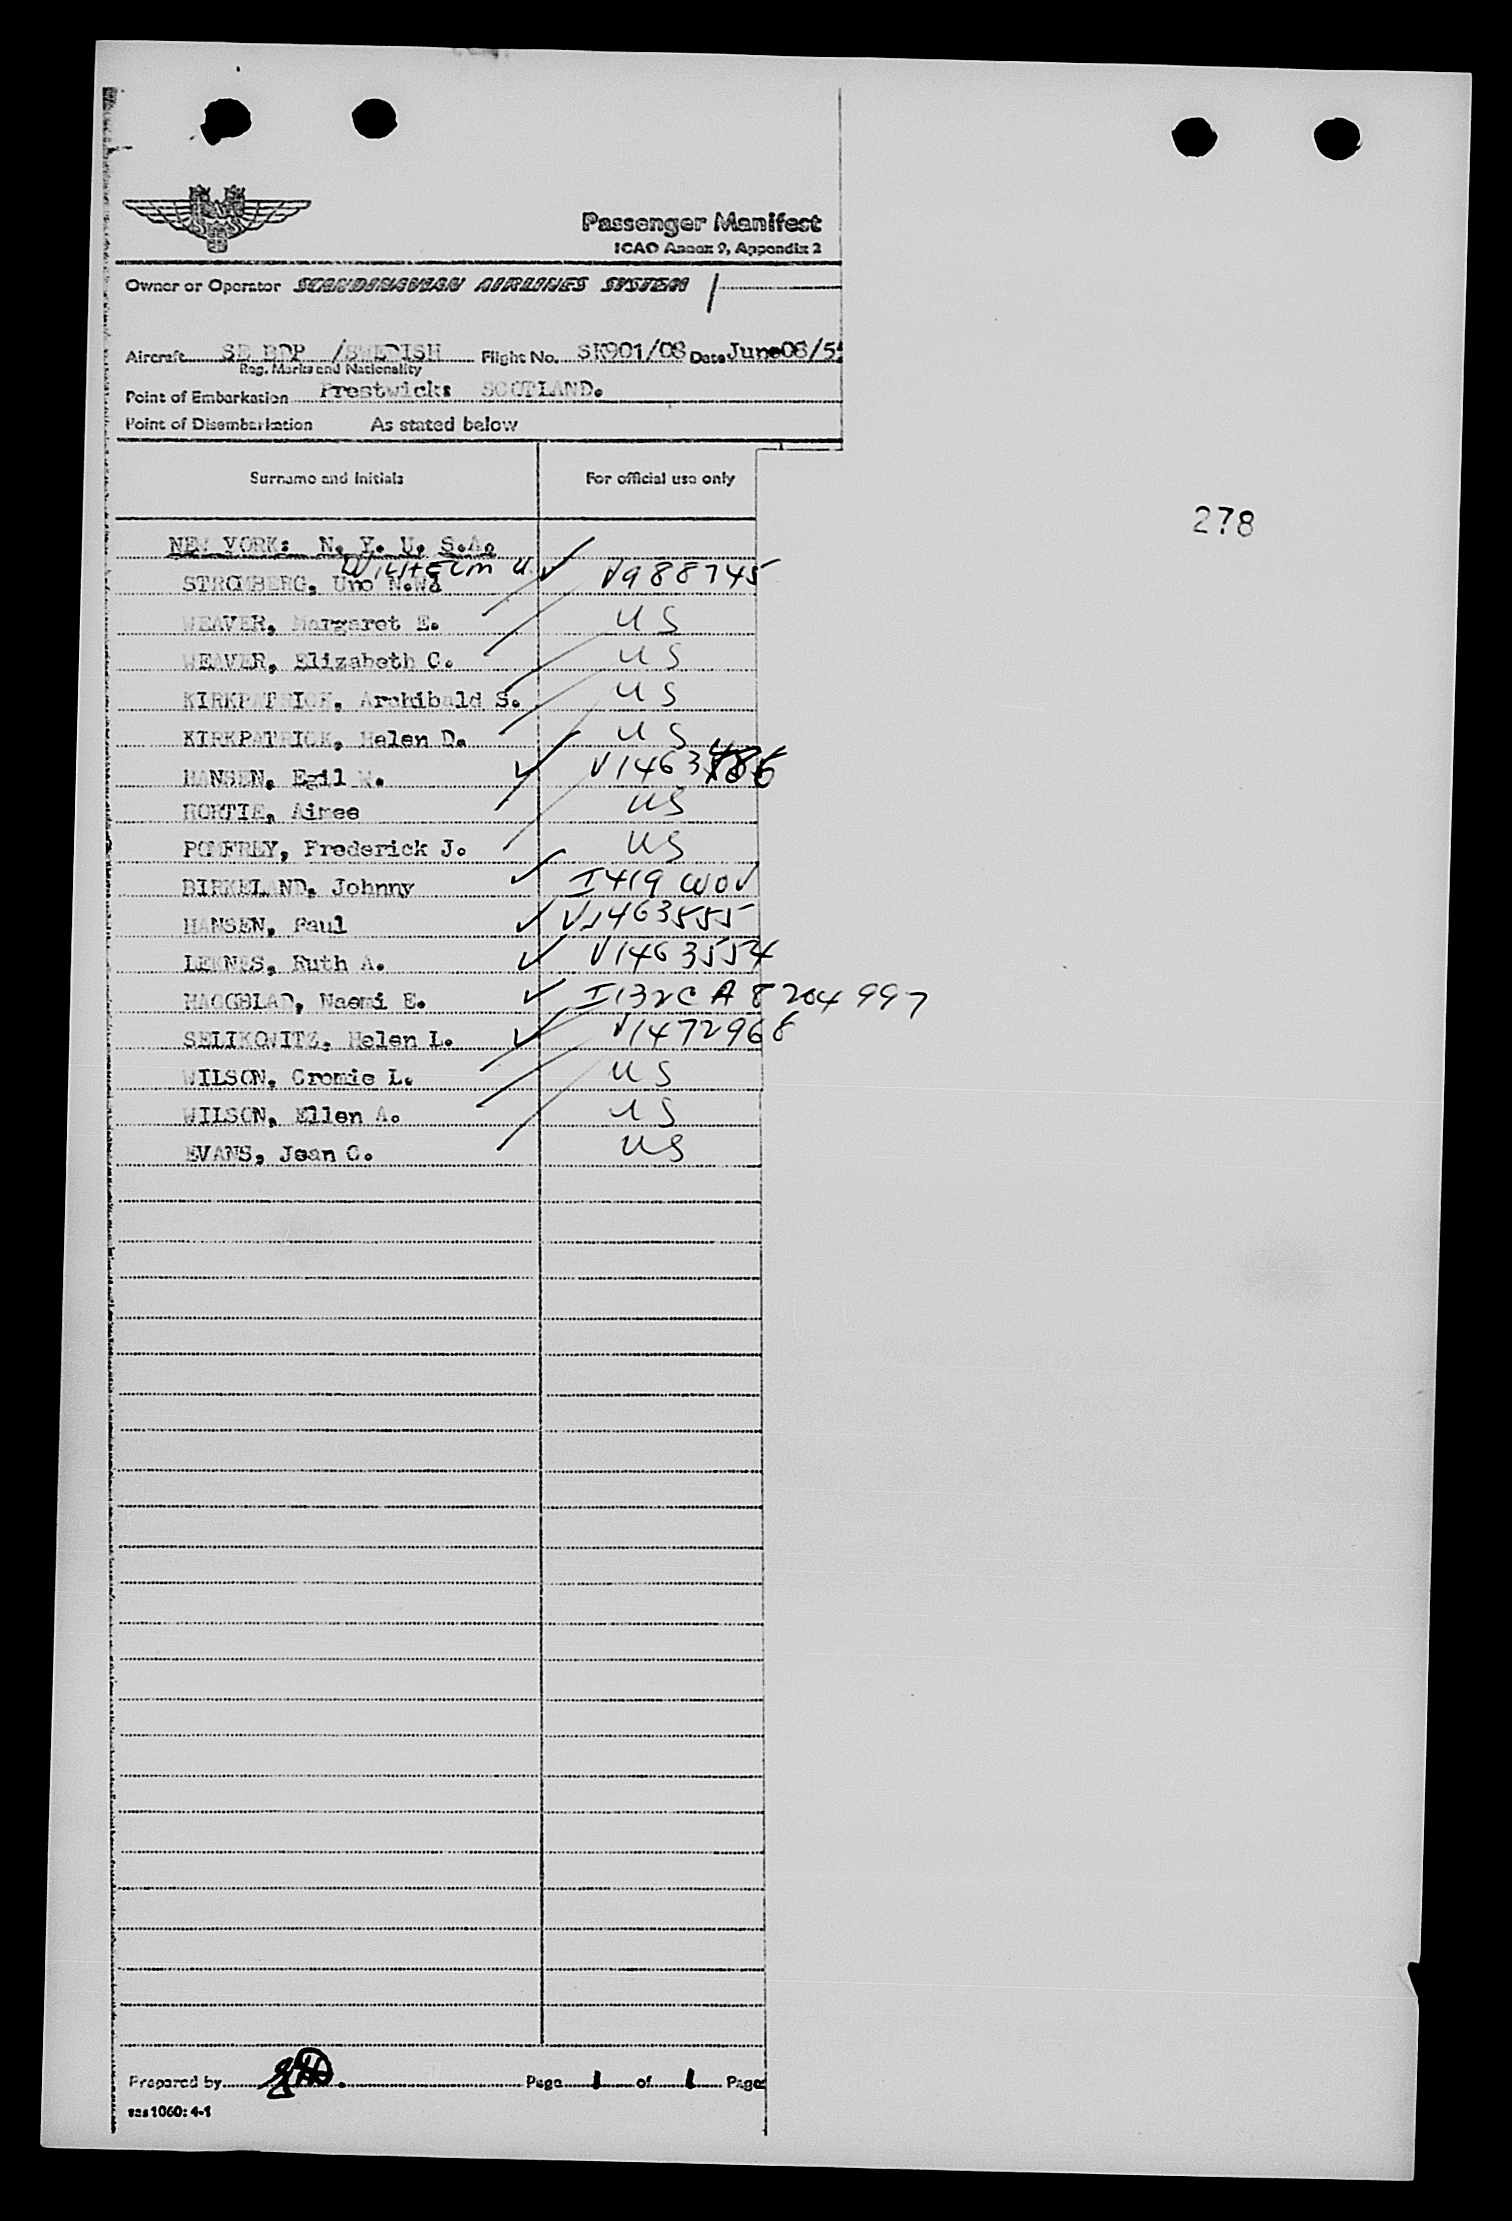 Passenger Manifest
ICAO Annex 9, Appendix 2
Owner or Operator SCANDINAVIAN AIRLINES SYSTEM
Aircraft SE BDP /SWEDISH Flight No. SK901/08 Date June08/5
Reg. Marks and Nationality
Point of Embarkation Prestwick: SCOTLAND.
Point of Disembarkation As stated below
Surname and Initials For official use only
278
NEW YORK: N. Y. U. S.A.
WILHELM U
STROMBERG, Uno N.W. V988745
WEAVER, Margaret E. US
WEAVER, Elizabeth C. US
KIRKPATRICK, Archibald S. US
KIRKPATRICK, Helen D. US
HANSEN, Egil W. V1463
HORTIE, Aimee US
POMFREY, Frederick J. US
BIRKELAND, Johnny I419 WOV
HANSEN, Paul V1463555
LEKNES, Ruth A. V1463554
HAGGBLAD, Naemi E. I132C A8204997
SELIKOWITZ, Helen L. V1472968
WILSON, Cromie L. US
WILSON, Ellen A. US
EVANS, Jean C. US
Prepared by Page 1 of 1 Page
sas 1060: 4-1